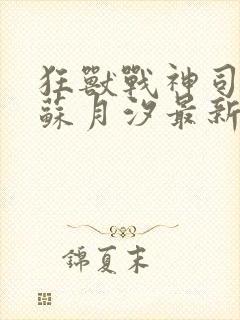 狂獸戰神司
蘇月汐最新
錦夏末